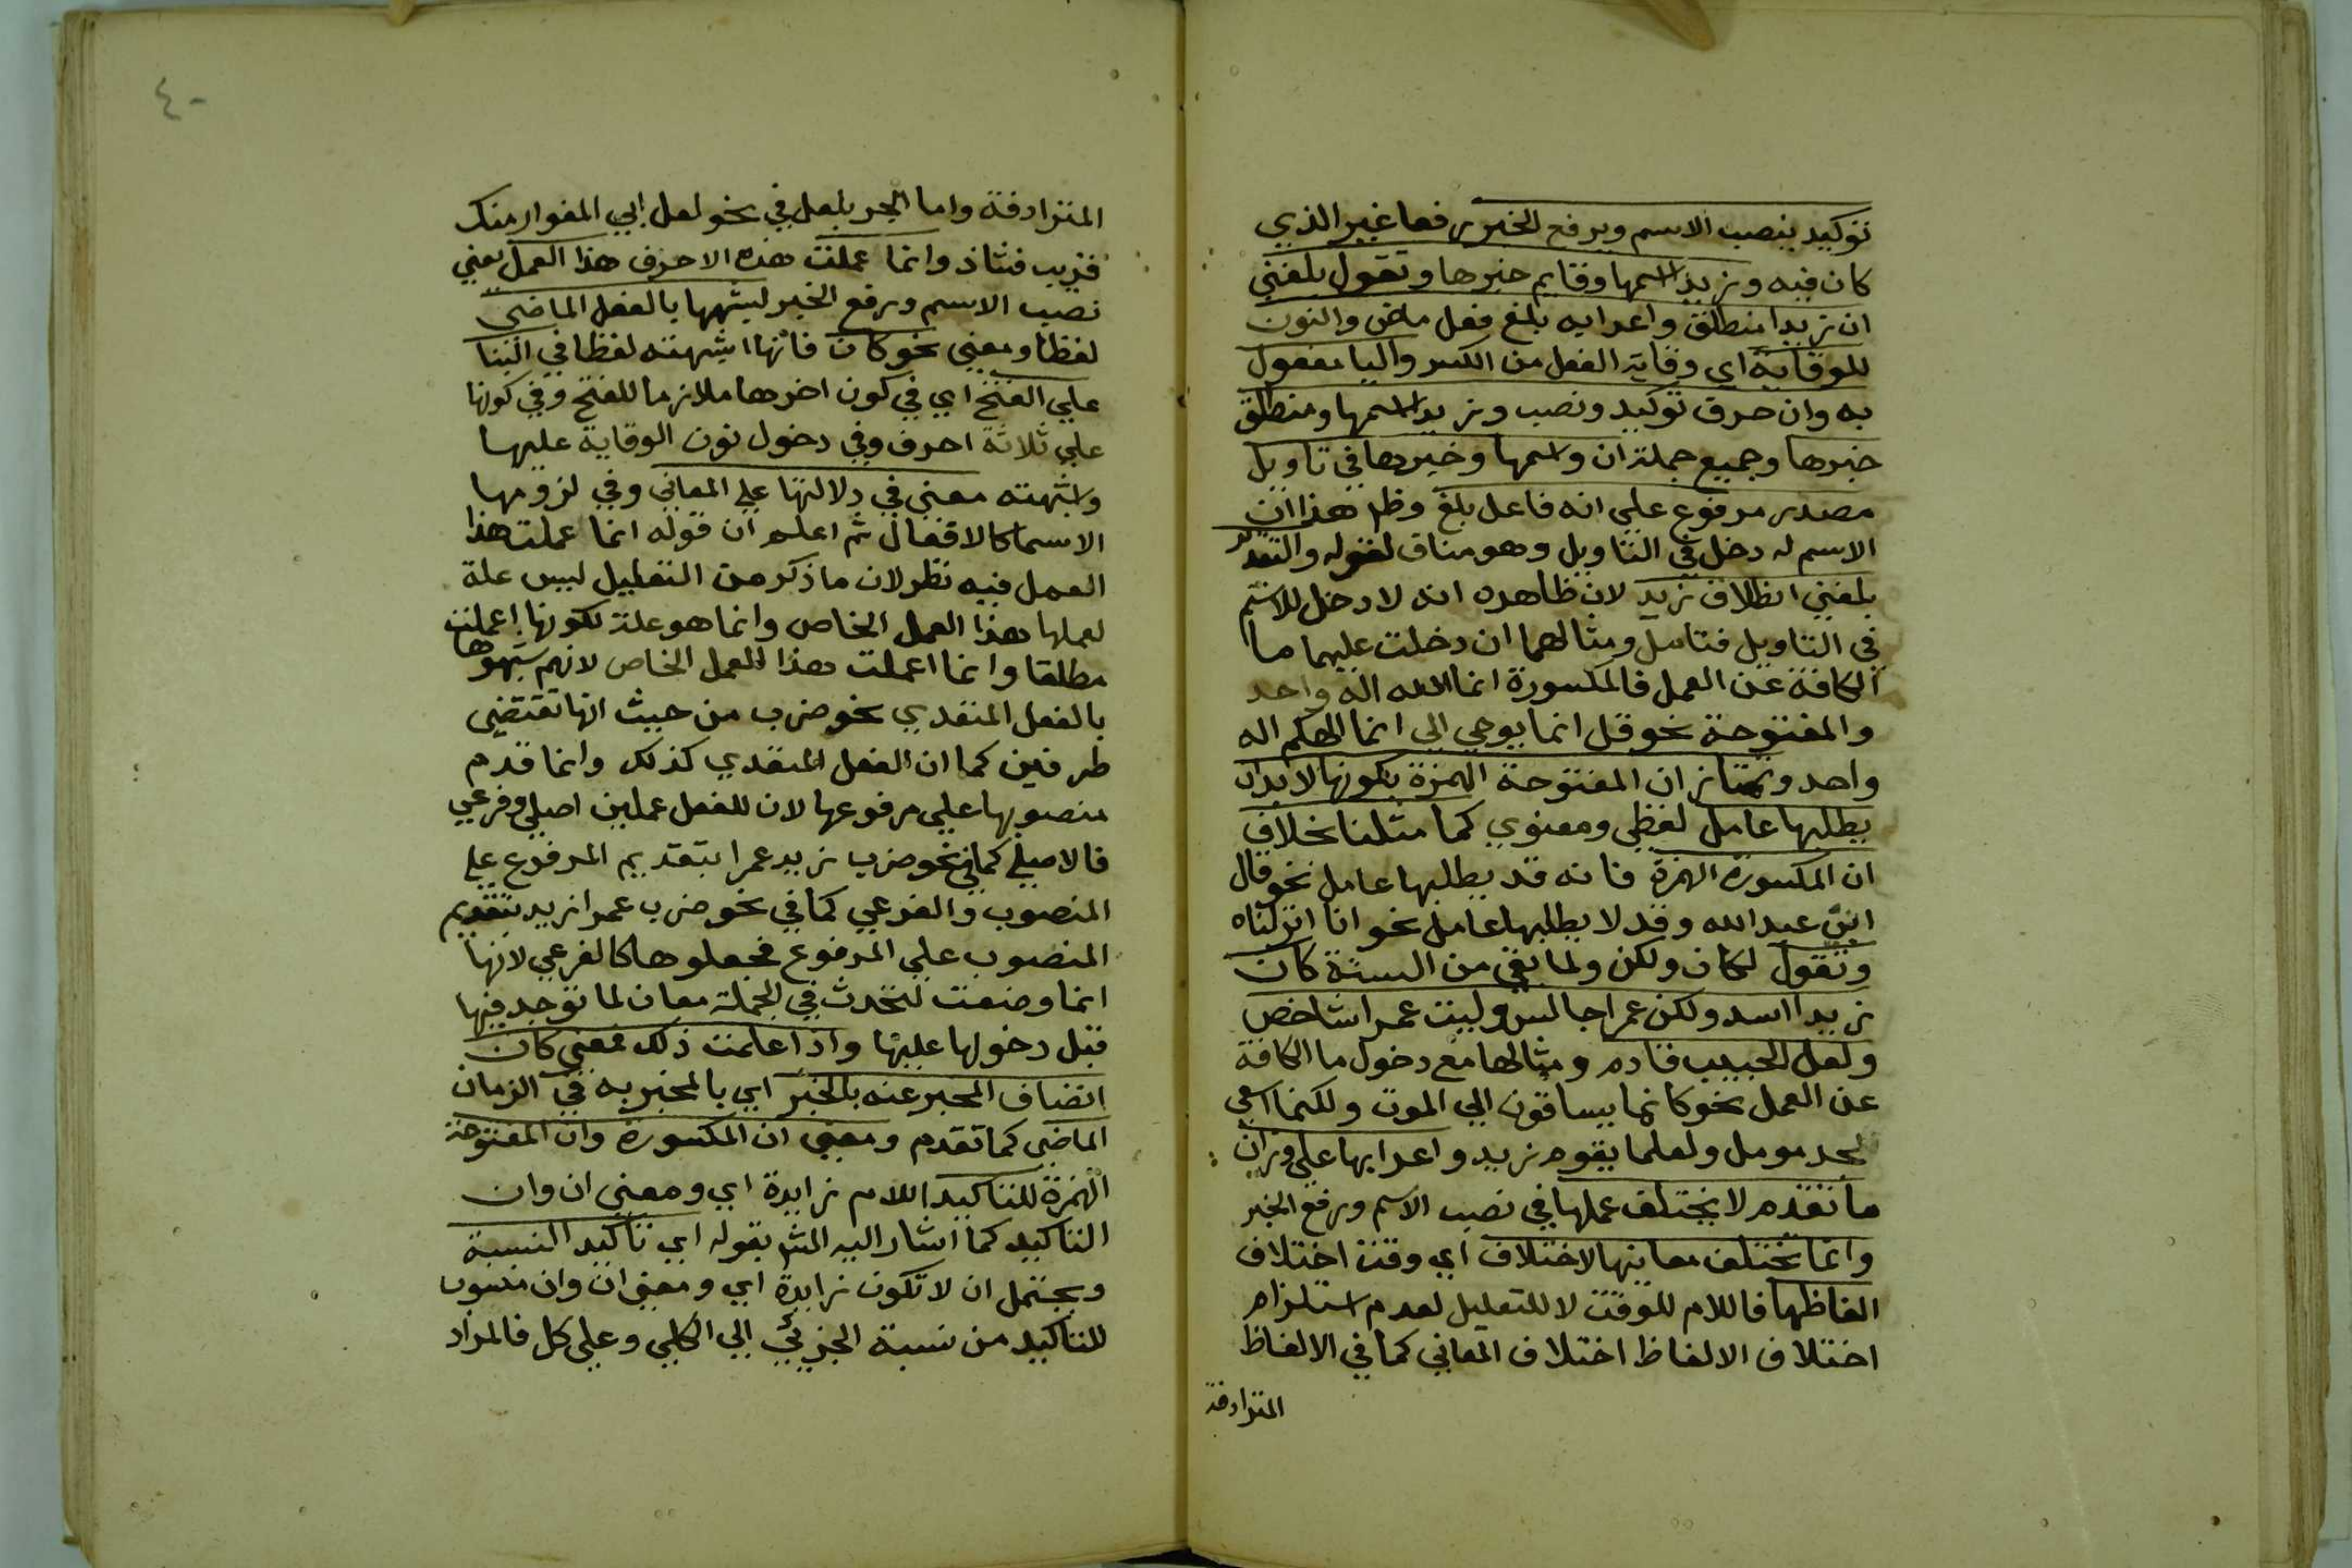 توكيد ينصب الاسم ويرفع الخبر رفعا غير الذي
كان فيه وزيدا اسمها وقايم خبرها وتقول بلغني
ان زيدا منطلق واعرابه بلغ فعل ماض والنون
للوقاية اي وقاية الفعل من الكسر واليا مفعول
به وان حرف توكيد ونصب وزيدا اسمها ومنطلق
خبرها وجميع جملة ان واسمها وخبرها في تاويل
مصدر مرفوع علي انه فاعل بلغ وظ هذا ان
الاسم له دخل في التاويل وهو مناف لقوله والتقدير
بلغني انطلاق زيد لان ظاهره انه لا دخل للاسم
في التاويل فتامل ومثالهما ان دخلت عليهما ما
الكافة عن العمل فالمكسورة انما الله اله واحد
والمفتوحة نحو قل انما يوحي الي انما الهكم اله
واحد وتمتاز ان المفتوحة الهمزة بكونها لابد ان
يطلبها عامل لفظي ومعنوي كما مثلنا بخلاف
ان المكسورة الهمزة فانه قد يطلبها عامل نحو قال
اني عبد الله وقد لا يطلبها عامل نحو انا انزلناه
وتقول لكان ولكن ولما بقي من الستة كان
زيدا اسد ولكن عمرا جالس وليت عمرا شاخص
ولعل الحبيب قادم ومثالها مع دخول ما الكافة
عن العمل نحو كانما يساقون الي الموت ولكنما اسعي
لمجد مومل ولعلما يقوم زيد واعرابها علي وزان
ما تقدم لا يختلف عملها في نصب الاسم ورفع الخبر
وانما تختلف معانيها لاختلاف اي وقت اختلاف
الفاظها فاللام للوقت لا للتعليل لعدم استلزام
اختلاف الالفاظ اختلاف المعاني كما في الالفاظ
المترادفة
٤٠
المترادفة واما الجر بلعل في نحو لعل ابي المغوار منك
قريب فشاذ وانما عملت هذه الاحرف هذا العمل يعني
نصب الاسم ورفع الخبر لشبهها بالفعل الماضي
لفظا ومعني نحو كان فانها اشبهته لفظا في البنا
علي الفتح اي في كون اخرها ملازما للفتح وفي كونها
علي ثلاثة احرف وفي دخول نون الوقاية عليها
واشبهته معني في دلالتها علي المعاني وفي لزومها
الاسما كالافعال ثم اعلم ان قوله انما عملت هذا
العمل فيه نظر لان ما ذكر من التعليل ليس علة
لعملها هذا العمل الخاص وانما هو علة لكونها اعملت
مطلقا وانما اعملت هذا العمل الخاص لانهم شبهوها
بالفعل المتعدي نحو ضرب من حيث انها تقتضي
طرفين كما ان الفعل المتعدي كذلك وانما قدم
منصوبها علي مرفوعها لان للفعل عملين اصلي وفرعي
فالاصلي كما في نحو ضرب زيد عمرا بتقديم المرفوع علي
المنصوب والفرعي كما في نحو ضرب عمرا زيد بتقديم
المنصوب علي المرفوع فجعلوها كالفرعي لانها
انما وضعت لتحدث في الجملة معان لما توجد فيها
قبل دخولها عليها واذا علمت ذلك فمعني كان
اتصاف المخبر عنه بالخبر اي بالمخبر به في الزمان
الماضي كما تقدم ومعني ان المكسورة وان المفتوحة
الهمزة للتاكيد اللام زايدة اي ومعني ان وان
التاكيد كما اشار اليه الش بقوله اي تاكيد النسبة
ويحتمل ان لا تكون زايدة اي ومعني ان وان منسوب
للتاكيد من نسبة الجزئي الي الكلي وعلي كل فالمراد